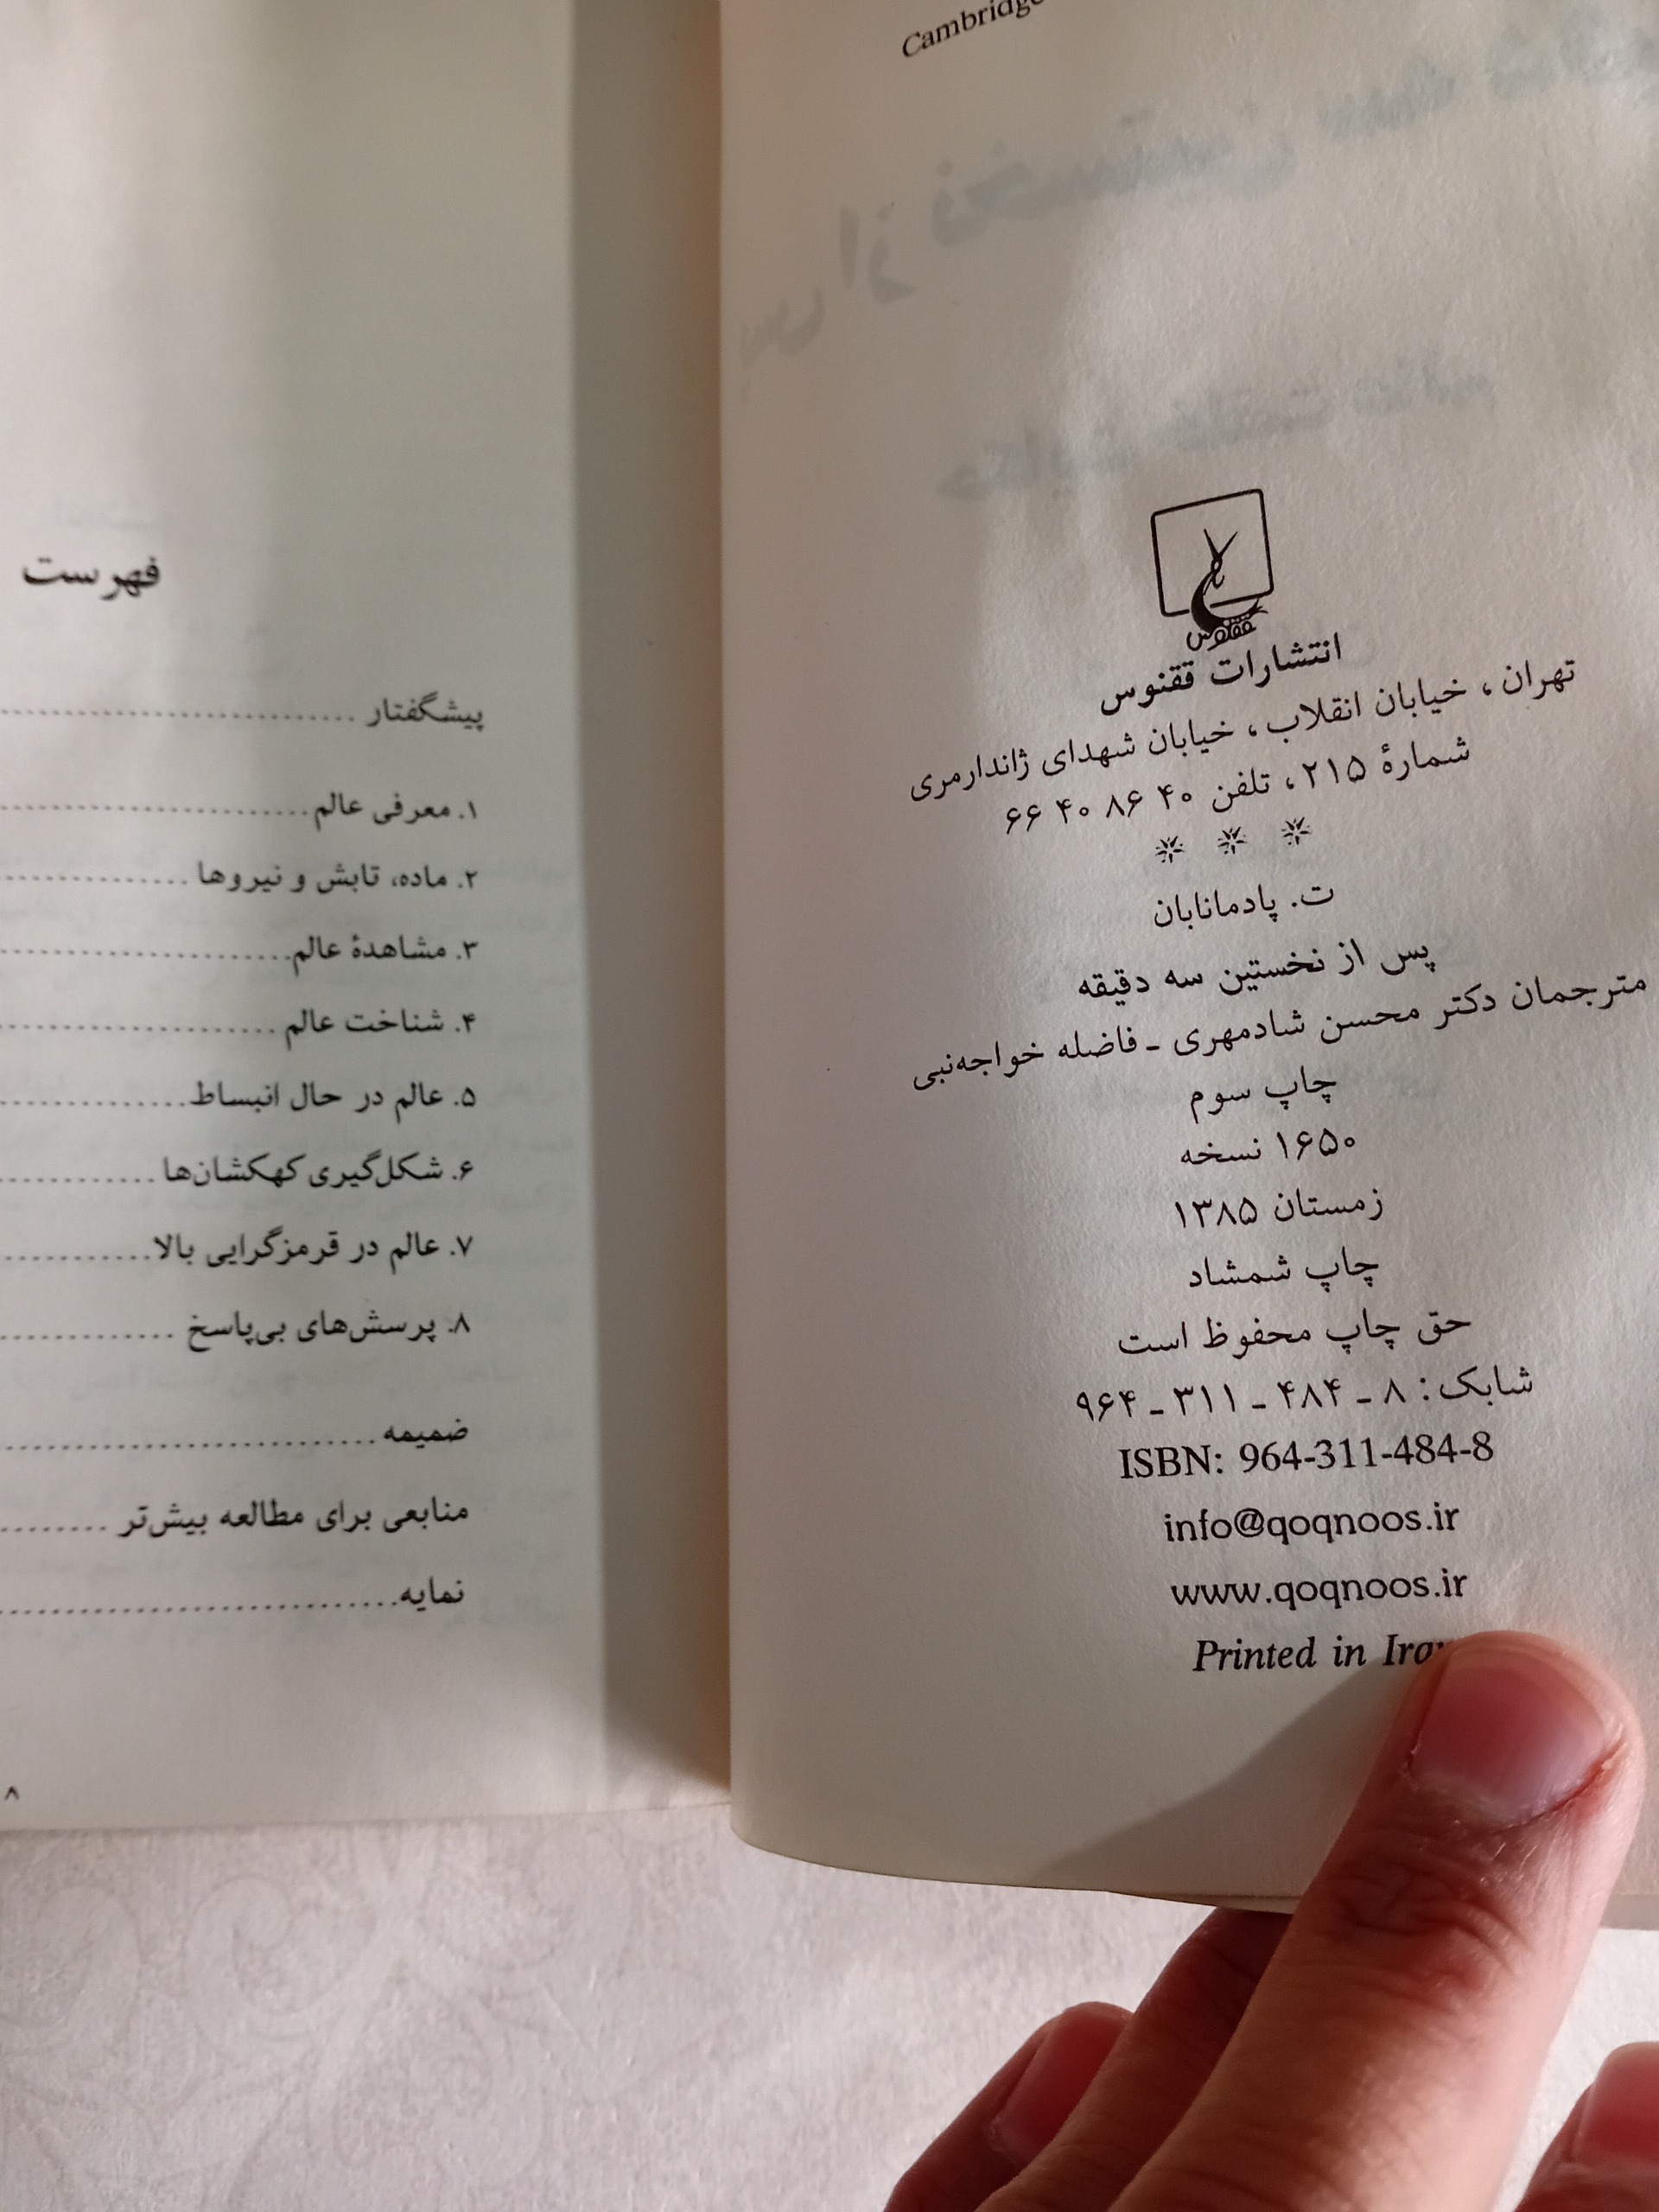 Cambridge
ققنوس
انتشارات ققنوس
تهران، خیابان انقلاب، خیابان شهدای ژاندارمری
شمارهٔ ۲۱۵، تلفن ۴۰ ۸۶ ۴۰ ۶۶
* * *
ت. پادمانابان
پس از نخستین سه دقیقه
مترجمان دکتر محسن شادمهری ـ فاضله خواجه‌نبی
چاپ سوم
۱۶۵۰ نسخه
زمستان ۱۳۸۵
چاپ شمشاد
حق چاپ محفوظ است
شابک: ۸ ـ ۴۸۴ ـ ۳۱۱ ـ ۹۶۴
ISBN: 964-311-484-8
info@qoqnoos.ir
www.qoqnoos.ir
Printed in
فهرست
پیشگفتار
۱. معرفی عالم
۲. ماده، تابش و نیروها
۳. مشاهدهٔ عالم
۴. شناخت عالم
۵. عالم در حال انبساط
۶. شکل‌گیری کهکشان‌ها
۷. عالم در قرمزگرایی بالا
۸. پرسش‌های بی‌پاسخ
ضمیمه
منابعی برای مطالعه بیش‌تر
نمایه
۸